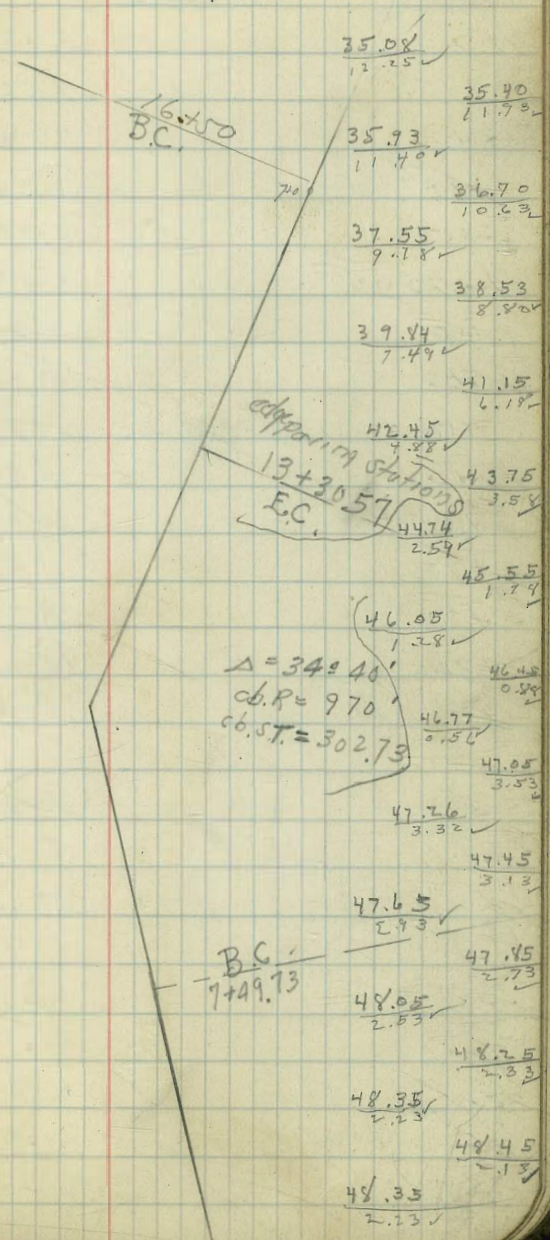 35.08
12.25 ✓
35.40
11.93 ✓
16+50
B.C.
35.93
11.40 ✓
36.70
10.63 ✓
37.55
9.78 ✓
38.53
8.80 ✓
39.84
7.49 ✓
41.15
6.18 ✓
42.45
4.88 ✓
edge paving stations
43.75
3.58 ✓
13+30.57
E.C.
44.74
2.59 ✓
45.55
1.78 ✓
46.05
1.28 ✓
Δ = 34° 40'
cb.R = 970'
cb.S.T. = 302.73
46.45
0.88
46.77
0.56 ✓
47.05
3.53 ✓
47.26
3.32 ✓
47.45
3.13 ✓
47.65
2.93 ✓
B.C.
7+49.73
47.85
2.73 ✓
48.05
2.53 ✓
48.25
2.33 ✓
48.35
2.23 ✓
48.45
2.13 ✓
48.35
2.23 ✓